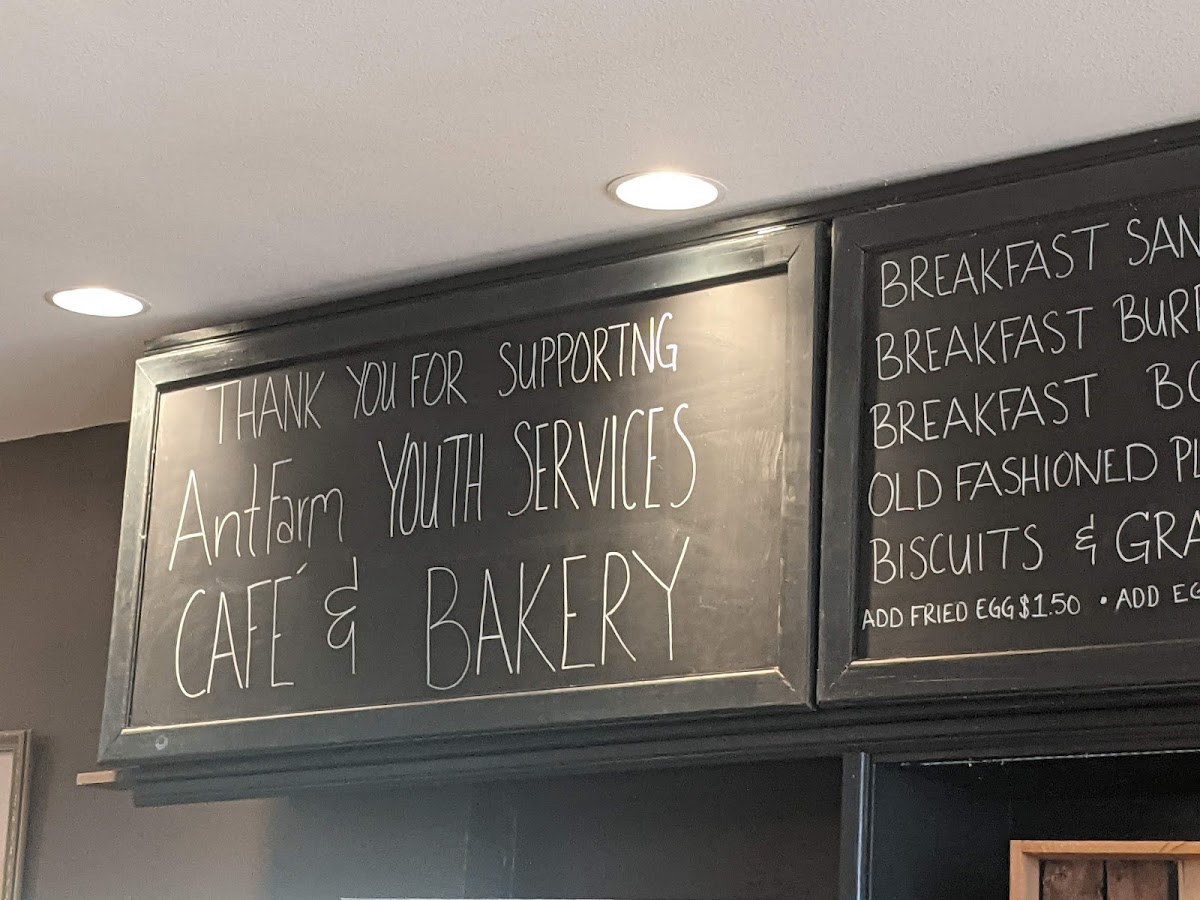 THANK YOU FOR SUPPORTNG
AntFarm YOUTH SERVICES
CAFÉ & BAKERY
BREAKFAST SAN
BREAKFAST BUR
BREAKFAST BO
OLD FASHIONED PL
BISCUITS & GRA
ADD FRIED EGG $1.50 • ADD EG